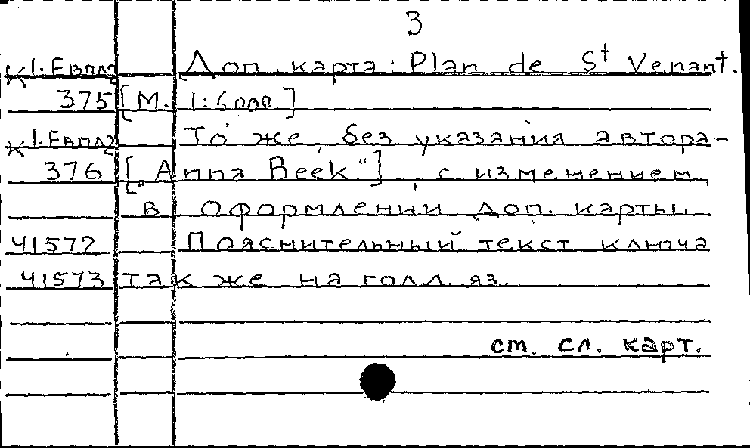 3
К 1: Евпа2 Доп. карта: Plan de St Venant.
375 [М. 1:6000]
К 1: Евпа2 То же, без указания автора-
376 [„Anna Beek"], с изменением
в оформлении доп. карты.
41572 Пояснительный текст ключа
41573 также на голл. яз.
ст. сл. карт.